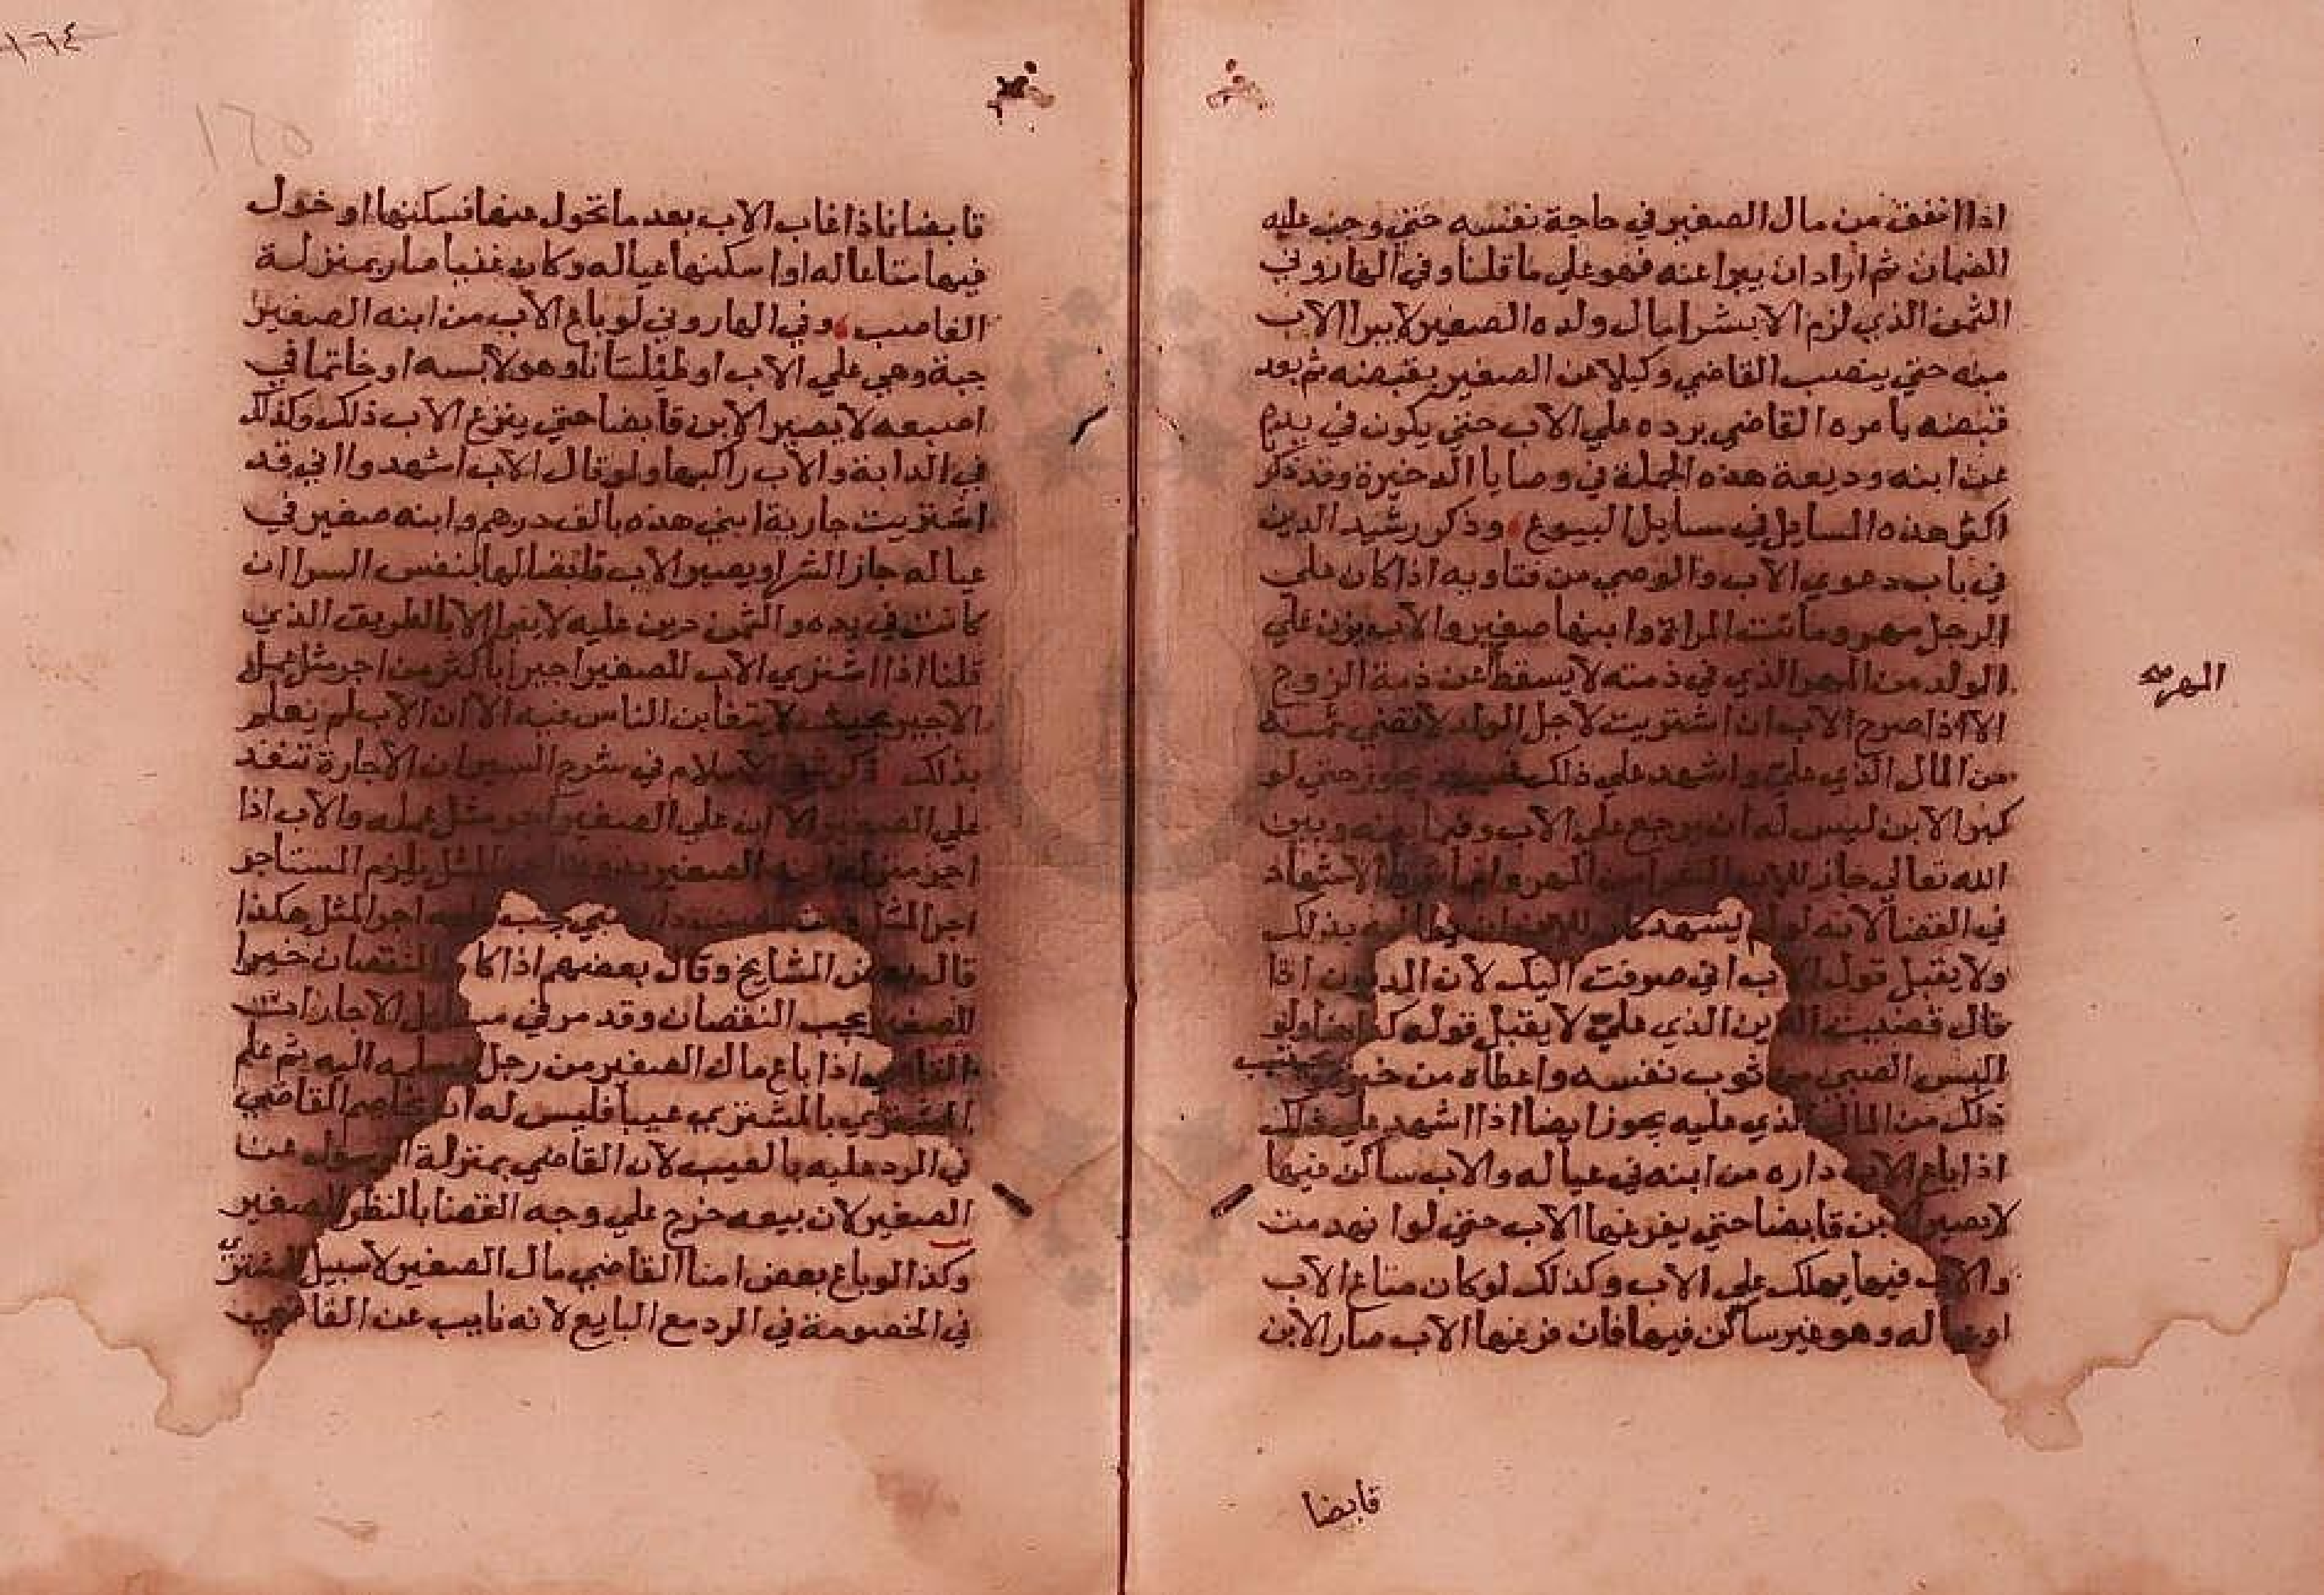 اذا انفق من مال الصغير في حاجة نفسه حتي وجب عليه
الضمان ثم اراد ان يبرا عنه فهو علي ما قلنا وفي الهاروني
الثمن الذي لزم الاب بشرا مال ولده الصغير لا يبرا الاب
منه حتي ينصب القاضي وكيلا عن الصغير يقبضه ثم بعد
قبضه يامره القاضي برده علي الاب حتي يكون في يده
عن ابنه وديعة هذه الجملة في وصايا الدخيرة وقد ذكر
اكثر هذه المسايل في مسايل البيوع وذكر رشيد الدين
في باب دعوي الاب والوصي من فتاويه اذا كان علي
الرجل مهر وماتت المراة وابنها صغير والاب يزن علي
الولد من المهر الذي في ذمته لا يسقط عن ذمة الزوج
الا اذا صرح الاب ان اشتريت لاجل الولد لاقضي ثمنه
من المال الذي علي واشهد علي ذلك يجوز حتي لو
كبر الابن ليس له ان يرجع علي الاب وفيما بينه وبين
الله تعالي جاز للاب من المهر وانما الاشهاد
في القضا لانه لو لم يشهد بذلك
ولا يقبل قول اني صرفت اليك لان المديون اذا
قال قضيت الدين الذي علي لا يقبل قوله ولو
البس الصبي من ثوب نفسه واعطاه من
ذلك من المال الذي عليه يجوز ايضا اذا اشهد علي ذلك
اذا باع الاب داره من ابنه في عياله والاب ساكن فيها
لا يصير الابن قابضا حتي يفرغها الاب حتي لو انهدمت
والاب فيها يهلك علي الاب وكذلك لو كان متاع الاب
او عياله وهو غير ساكن فيها فان فرغها الاب صار الابن
المهر
قابضا
١٦٤
١٦٥
قابضا فاذا غاب الاب بعد ما تحول عنها فسكنها او حول
فيها متاعا له او اسكنها عياله وكان غنيا صار بمنزلة
الغاصب وفي الهاروني لو باع الاب من ابنه الصغير
جبة وهي علي الاب او طيلسانا وهو لابسه او خاتما في
اصبعه لا يصير الابن قابضا حتي ينزع الاب ذلك وكذلك
في الدابة والاب راكبها ولو قال الاب اشهدوا اني قد
اشتريت جارية ابني هذه بالف درهم وابنه صغير في
عياله جاز الشرا ويصير الاب قابضا لها بنفس الشرا ان
كانت في يده والثمن دين عليه لا يبرا الا بالطريق الذي
قلنا اذا اشتري الاب للصغير اجيرا باكثر من اجر مثل عمل
الاجير بحيث لا يتغابن الناس فيه الا ان الاب لم يعلم
بذلك ذكر شيخ الاسلام في شرح السير ان الاجارة تنفذ
علي الصغير الا ان علي الصغير اجر مثل عمله والاب اذا
اجر منزل ابنه الصغير بدون اجر المثل يلزم المستاجر
اجر المثل يجب اجر المثل هكذا
قال بعض المشايخ وقال بعضهم اذا كان النقصان خيرا
للصغير يجب النقصان وقد مر في مسايل الاجارات
القاضي اذا باع مال الصغير من رجل وسلمه اليه ثم علم
المشتري بالمشتري عيبا فليس له ان يخاصم القاضي
في الرد عليه بالعيب لان القاضي بمنزلة الرسول عن
الصغير لان بيعه خرج علي وجه القضا بالنظر للصغير
وكذا لو باع بعض امنا القاضي مال الصغير لا سبيل للمشتري
في الخصومة في الرد مع البايع لانه نايب عن القاضي